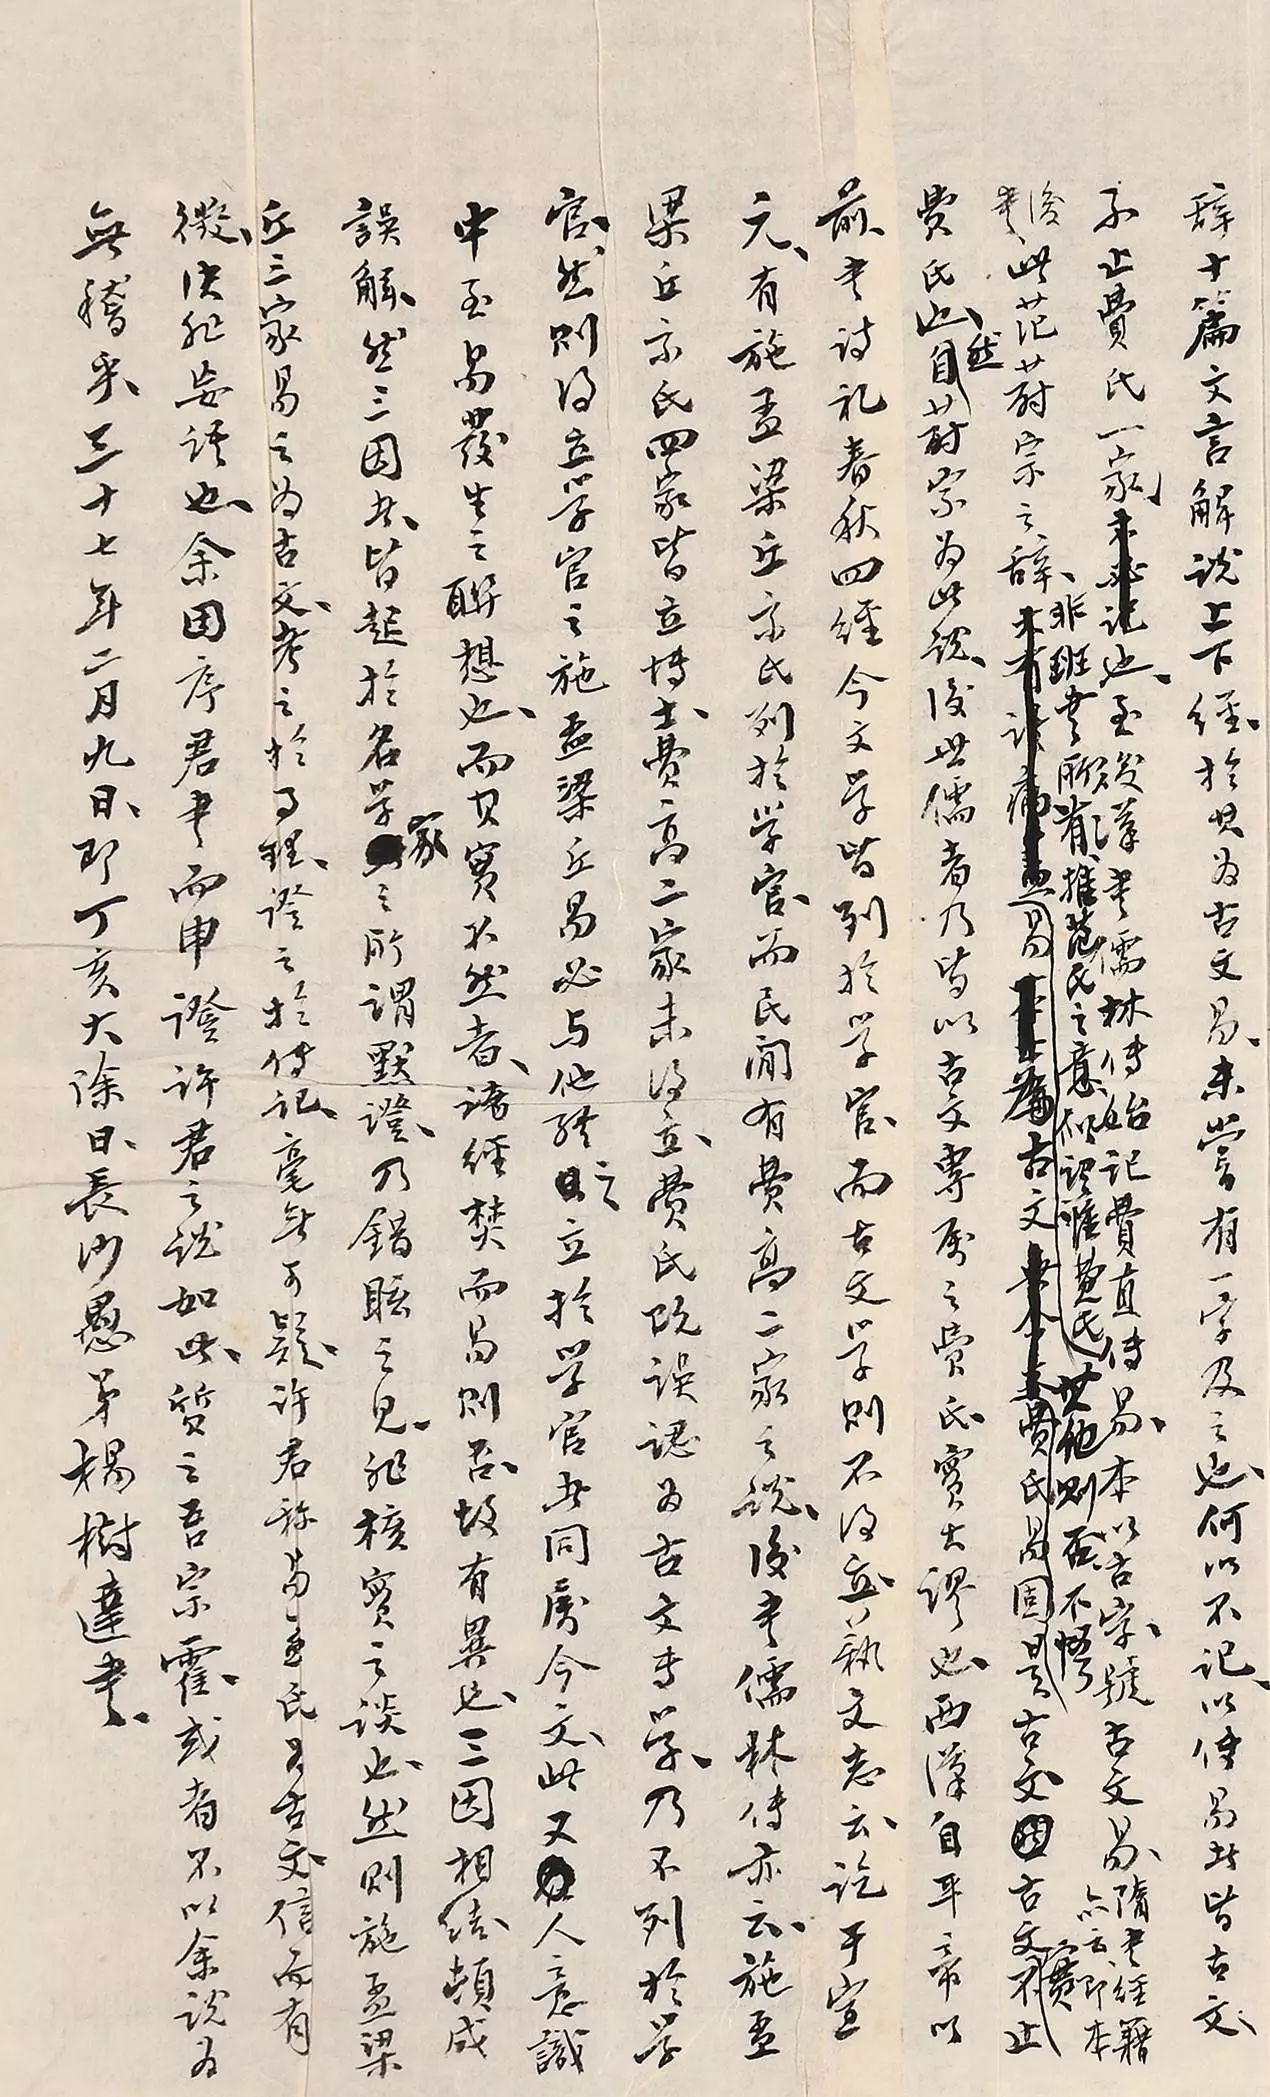 辭十篇文言解說上下經、於其為古文易、未嘗有一字及之也、何以不記、以傳易者皆古文、
不止費氏一家、未必記也、至後漢書儒林傳始記費直傳易、本以古字、號古文易、隋書經籍
亦云即本
後書
此范蔚宗之辭、
非班書所有、推范氏之意似謂唯費氏其他則否、不悟
易古文費氏易固是古文古文實不止
費氏也、然自蔚宗為此說、後世儒者乃皆以古文專屬之費氏、實大謬也、西漢自平帝以
前、書詩礼春秋四經今文学皆列於学官、而古文学則不得立、藝文志云、訖于宣
元、有施孟梁丘京氏列於学官、而民间有費高二家之說、後書儒林傳亦云、施孟
梁丘京氏四家皆立博士、費高二家未得立、費氏既誤認为古文専学、乃不列於学
官、然則得立学官之施孟梁丘易必与他經之立於学官者同屬今文、此又人意識
中至易發生之聯想也、而其實不然者、諸經焚而易則否、故有異也、三因相結、頓成
誤解、然三因者、皆起於名学家之所謂默證、乃錯眩之見、非核實之談也、然則施孟梁
丘三家易之为古文、考之於事理、證之於傳記、毫無可疑、許君称易孟氏为古文、信而有
徵、決非妄語也、余因序君書而申證許君之說如此、質之吾宗霍、或者不以余說为
無稽乎、三十七年二月九日、即丁亥大除日、長沙愚弟楊樹達書、